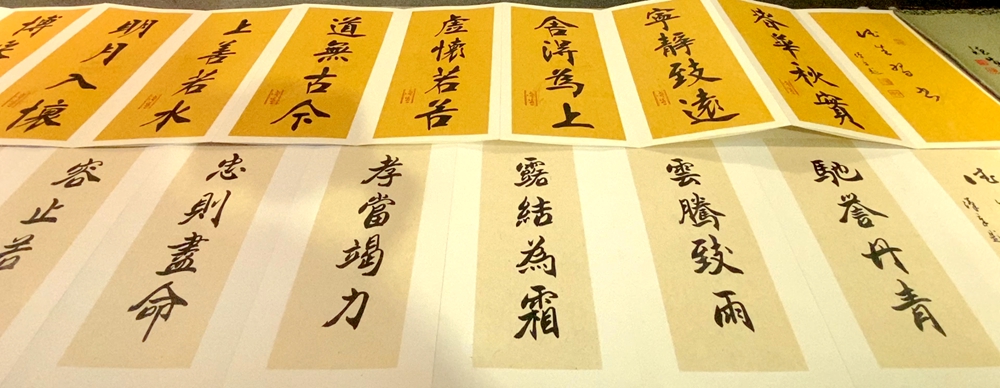 春華秋實
寧靜致遠
舍得為上
虛懷若谷
道無古今
上善若水
明月入懷
馳譽丹青
雲騰致雨
露結為霜
孝當竭力
忠則盡命
容止若